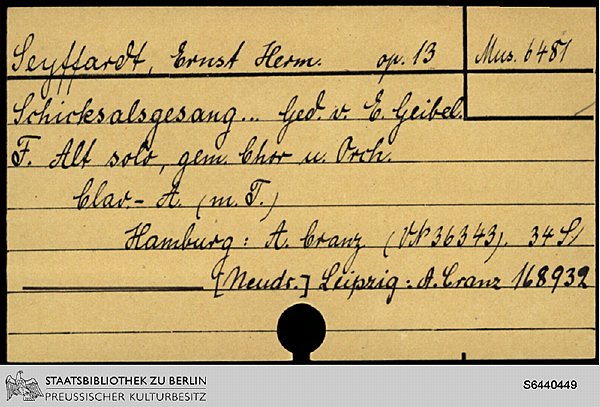 Seyffardt, Ernst Herm. op. 13 Mus. 6481
Schicksalsgesang... Ged. v. E. Geibel.
F. Alt solo, gem. Chor u. Orch.
Clav.-A. (m. T.)
Hamburg: A. Cranz (VN 36343). 34 S/
[Neudr.] Leipzig: A. Cranz 168932
STAATSBIBLIOTHEK ZU BERLIN
PREUSSISCHER KULTURBESITZ
S6440449